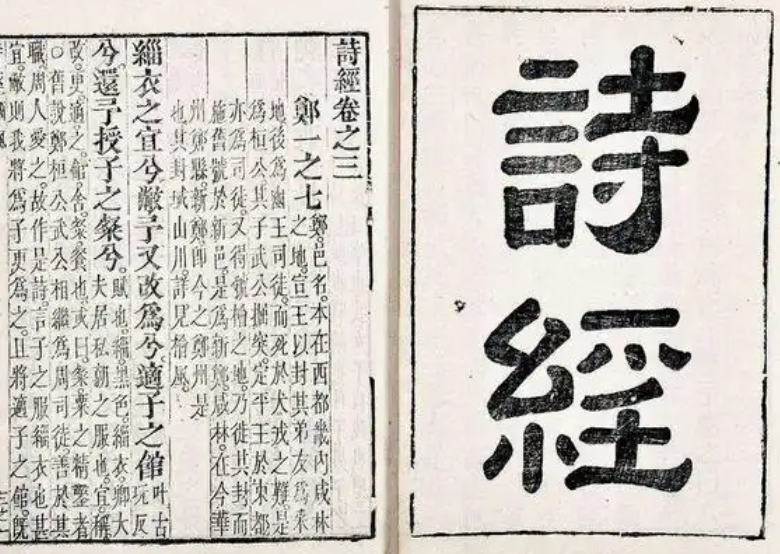 詩經
詩經卷之三
鄭一之七
鄭。邑名。本在西都畿內咸林
之地。宣王以封其弟友為采
地後為幽王司徒。而死於犬戎之難。是
為桓公。其子武公掘突。定平王於東都
亦為司徒。又得虢檜之地。乃徙其封而
施舊號於新邑。是為新鄭。咸林。在今華
州鄭縣。新鄭。即今之鄭州是
也。其封域山川。詳見檜風。
緇衣之宜兮。敝予又改為兮。適子之館
叶古
玩反
兮。還予授子之粲兮。
賦也。緇黑色。緇衣。卿大
夫居私朝之服也。宜。稱
改。更。適。之。館。舍。粲。餐也。或曰。粲。粟之精鑿者
○舊說鄭桓公武公相繼為周司徒。善於其
職。周人愛之。故作是詩言子之服緇衣也甚
宜。敝則我將為子更為之。且將適子之館。既